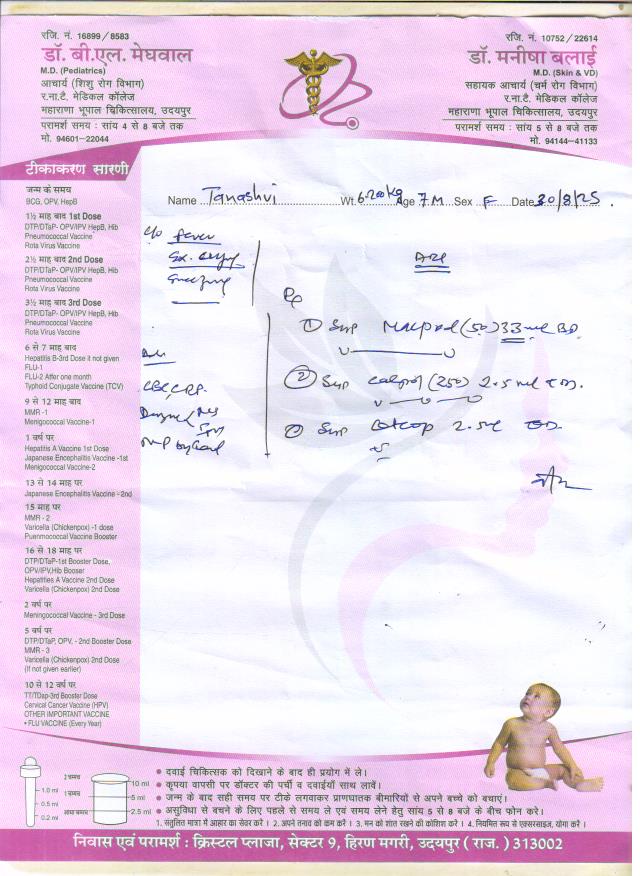 रजि. नं. 16899 / 8583
डॉ. बी.एल. मेघवाल
M.D. (Pediatrics)
आचार्य (शिशु रोग विभाग)
र.ना.टै. मेडिकल कॉलेज
महाराणा भूपाल चिकित्सालय, उदयपुर
परामर्श समय : सांय 4 से 8 बजे तक
मो. 94601-22044
रजि. नं. 10752 / 22614
डॉ. मनीषा बलाई
M.D. (Skin & VD)
सहायक आचार्य (चर्म रोग विभाग)
र.ना.टै. मेडिकल कॉलेज
महाराणा भूपाल चिकित्सालय, उदयपुर
परामर्श समय : सांय 5 से 8 बजे तक
मो. 94144-41133
टीकाकरण सारणी
जन्म के समय
BCG, OPV, HepB
1½ माह बाद 1st Dose
DTP/DTaP- OPV/IPV HepB, Hib
Pneumococcal Vaccine
Rota Virus Vaccine
2½ माह बाद 2nd Dose
DTP/DTaP- OPV/IPV HepB, Hib
Pneumococcal Vaccine
Rota Virus Vaccine
3½ माह बाद 3rd Dose
DTP/DTaP- OPV/IPV HepB, Hib
Pneumococcal Vaccine
Rota Virus Vaccine
6 से 7 माह बाद
Hepatitis B-3rd Dose it not given
FLU-1
FLU-2 Affer one month
Typhoid Conjugate Vaccine (TCV)
9 से 12 माह बाद
MMR -1
Menigococcal Vaccine-1
1 वर्ष पर
Hepatitis A Vaccine 1st Dose
Japanese Encephalitis Vaccine -1st
Menigococcal Vaccine-2
13 से 14 माह पर
Japanese Encephalitis Vaccine - 2nd
15 माह पर
MMR - 2
Varicella (Chickenpox) -1 dose
Puenmococcal Vaccine Booster
16 से 18 माह पर
DTP/DTaP-1st Booster Dose,
OPV/IPV,Hib Booser
Hepatities A Vaccine 2nd Dose
Varicella (Chickenpox) 2nd Dose
2 वर्ष पर
Meningococcal Vaccine - 3rd Dose
5 वर्ष पर
DTP/DTaP, OPV, - 2nd Booster Dose
MMR - 3
Varicella (Chickenpox) 2nd Dose
(If not given earlier)
10 से 12 वर्ष पर
TT/TDap-3rd Booster Dose
Cervical Cancer Vaccine (HPV)
OTHER IMPORTANT VACCINE
• FLU VACCINE (Every Year)
Name Tanashvi Wt. 6.200kg Age 7 M Sex F Date 30/8/25
c/o fever
Sneezing
CBC, CRP
Rx
① Syp (50) 3.3 ml BD
② Syp Calpol (250) 2.5 ml TDS
③ Syp 2.5 ml
1.0 ml
0.5 ml
0.2 ml
2 चम्मच
1 चम्मच
आधा चम्मच
10 ml
5 ml
2.5 ml
• दवाई चिकित्सक को दिखाने के बाद ही प्रयोग में ले।
• कृपया वापसी पर डॉक्टर की पर्ची व दवाईयाँ साथ लावें।
• जन्म के बाद सही समय पर टीके लगवाकर प्राणघातक बीमारियों से अपने बच्चे को बचाएं।
• असुविधा से बचने के लिए पहले से समय ले एवं समय लेने हेतु सांय 5 से 8 बजे के बीच फोन करे।
1. संतुलित मात्रा में आहार का सेवर करें। 2. अपने तनाव को कम करें। 3. मन को शांत रखने की कोशिश करे। 4. नियमित रूप से एक्सरसाइज, योगा करें।
निवास एवं परामर्श : क्रिस्टल प्लाजा, सेक्टर 9, हिरण मगरी, उदयपुर ( राज. ) 313002